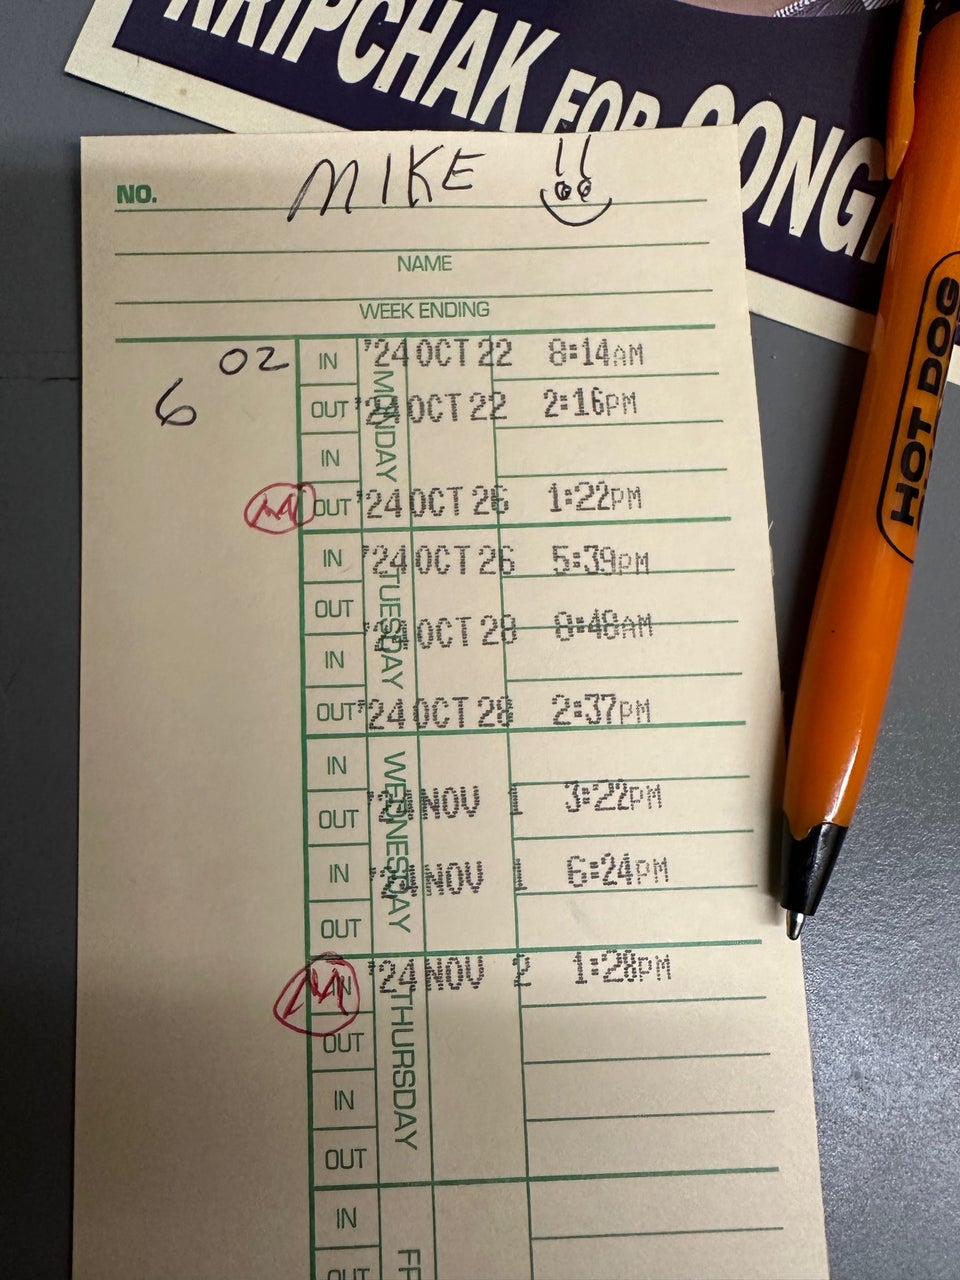 KRIPCHAK FOR CONG
NO. MIKE !!
NAME
WEEK ENDING
02 IN '24 OCT 22 8:14AM
6 OUT '24 OCT 22 2:16PM
MONDAY
IN
M OUT '24 OCT 26 1:22PM
IN '24 OCT 26 5:39PM
OUT
TUESDAY
'24 OCT 28 8:48AM
IN
OUT '24 OCT 28 2:37PM
IN
WEDNESDAY
OUT '24 NOV 1 3:22PM
IN '24 NOV 1 6:24PM
OUT
M IN '24 NOV 2 1:28PM
THURSDAY
OUT
IN
OUT
IN
FR
OUT
HOT DOG